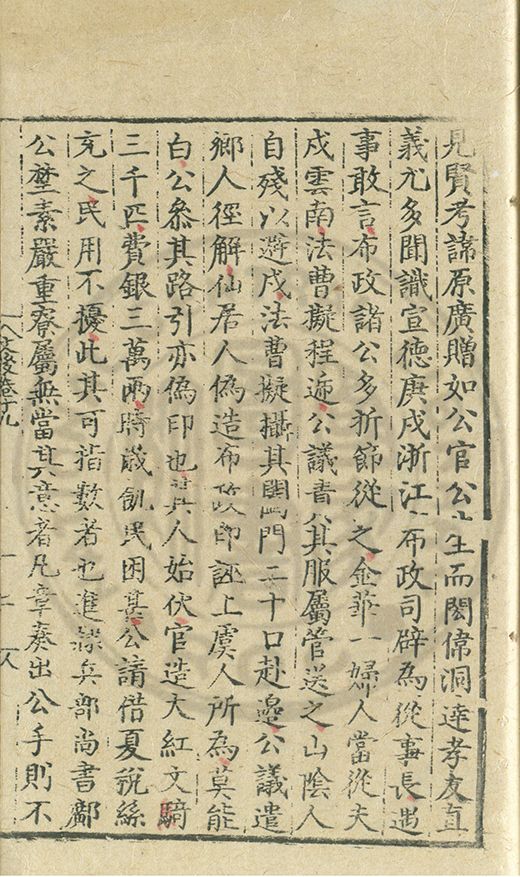 見賢考諱原廣贈如公官公生而閎偉洞達孝友直
義尤多聞識宣德庚戌浙江布政司辟為從事長遇
事敢言布政諸公多折節從之金華一婦人當從夫
戍雲南法曹擬程逓公議責其服屬管送之山陰人
自殘以避戍法曹擬攝其闔門二十口赴邊公議遣
鄉人徑解仙居人偽造布政印誣上虞人所為莫能
白公叅其路引亦偽印也其人始伏官造大紅文騎
三千匹費銀三萬兩時歲飢民困甚公請借夏稅絲
充之民用不擾此其可指數者也進掾兵部尚書鄺
公埜素嚴重寮屬無當其意者凡章奏出公手則不